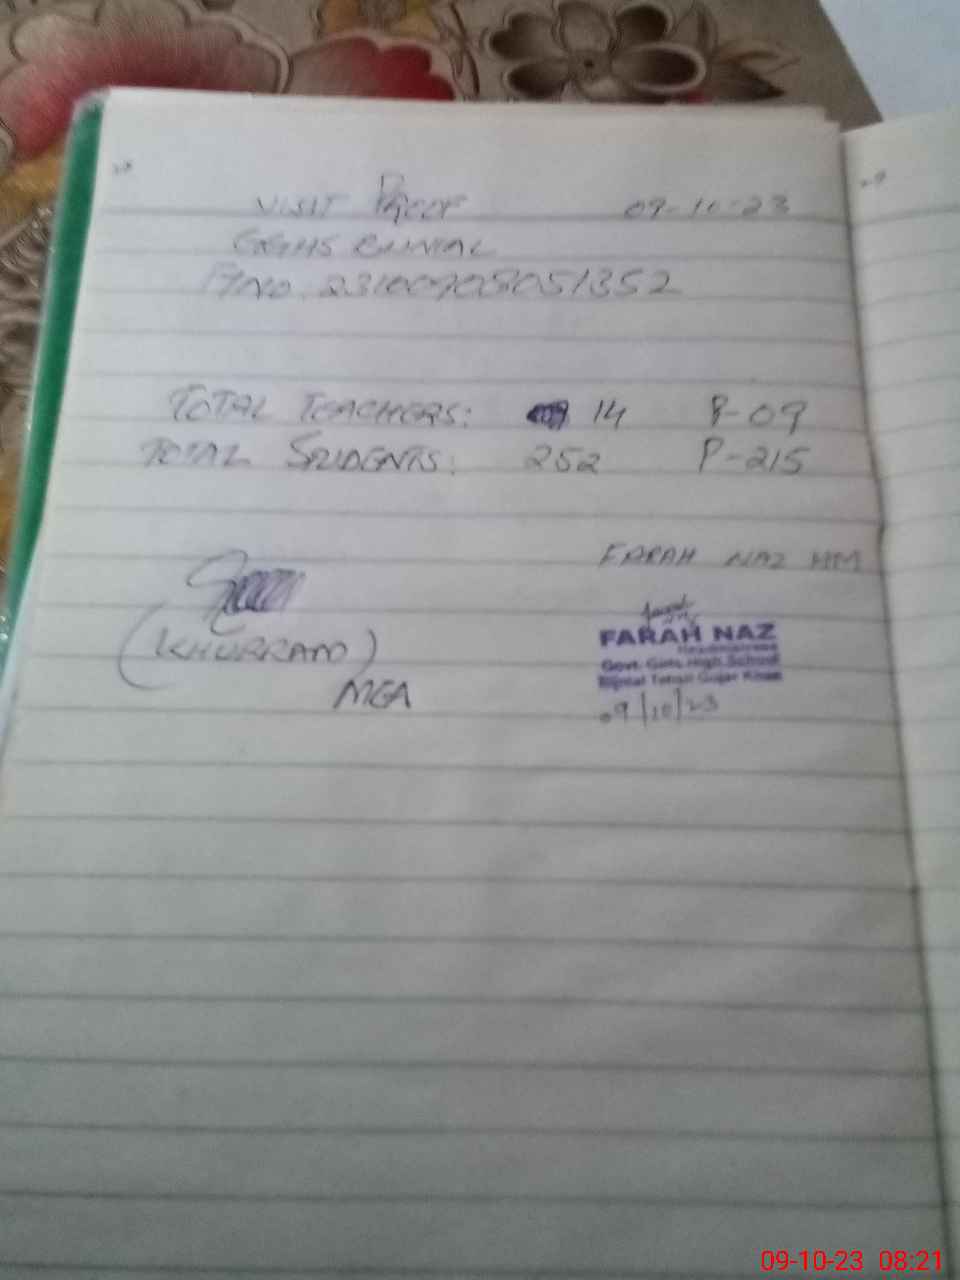 VISIT PROOF 09-10-23
GGHS
TOTAL TEACHERS: 14 P-09
TOTAL STUDENTS: 252 P-215
FARAH NAZ HM
(KHURRAM)
MEA
FARAH NAZ
Headmistress
Govt. Girls High School
Tehsil Gujar Khan
09/10/23
09-10-23 08:21